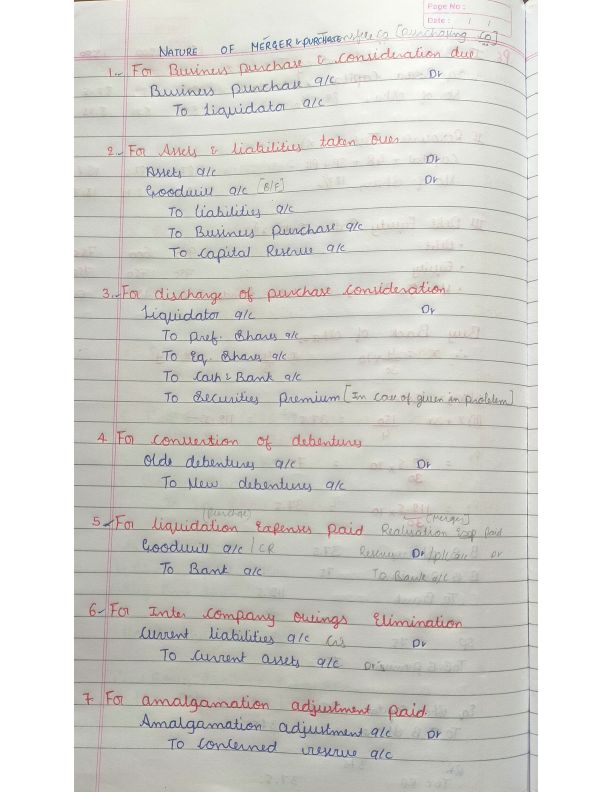 Page No:
Date: / /
NATURE OF MERGER & PURCHASE Transferee Co [Purchasing Co]
1.- For Business purchase & consideration due
Business purchase a/c Dr
To Liquidator a/c
2.- For Assets & liabilities taken over
Assets a/c Dr
Goodwill a/c [B/F] Dr
To liabilities a/c
To Business Purchase a/c
To Capital Reserve a/c
3.- For discharge of purchase consideration
Liquidator a/c Dr
To Pref. Shares a/c
To Eq. Shares a/c
To Cash & Bank a/c
To Securities Premium [In case of given in problem]
4. For convertion of debentures
Olde debentures a/c Dr
To New debentures a/c
(Purchase) (Merger)
5.- For liquidation Expenses paid Realisation Exp Paid
Goodwill a/c / CR Reserve Dr /P/L a/c Dr
To Bank a/c To Bank a/c
6.- For Inter Company owings Elimination
Current liabilities a/c Crs Dr
To Current assets a/c Dr's
7 For amalgamation adjustment paid
Amalgamation adjustment a/c Dr
To Concerned reserve a/c